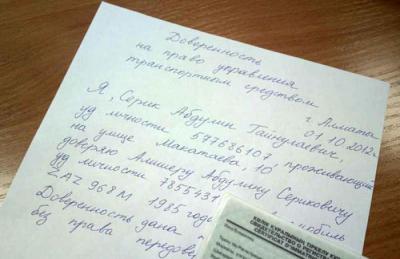 Доверенность
на право управления
транспортным средством
г. Алматы
01.10.2012г.
Я, Серик Абдулин Гайнулаевич,
уд личности 597686107, проживающий
на улице Макатаева, 10
доверяю Алишеру Абдулину Сериковичу
уд личности 7855431
ZAZ 968М 1985 годе
Доверенность дана
без права передове